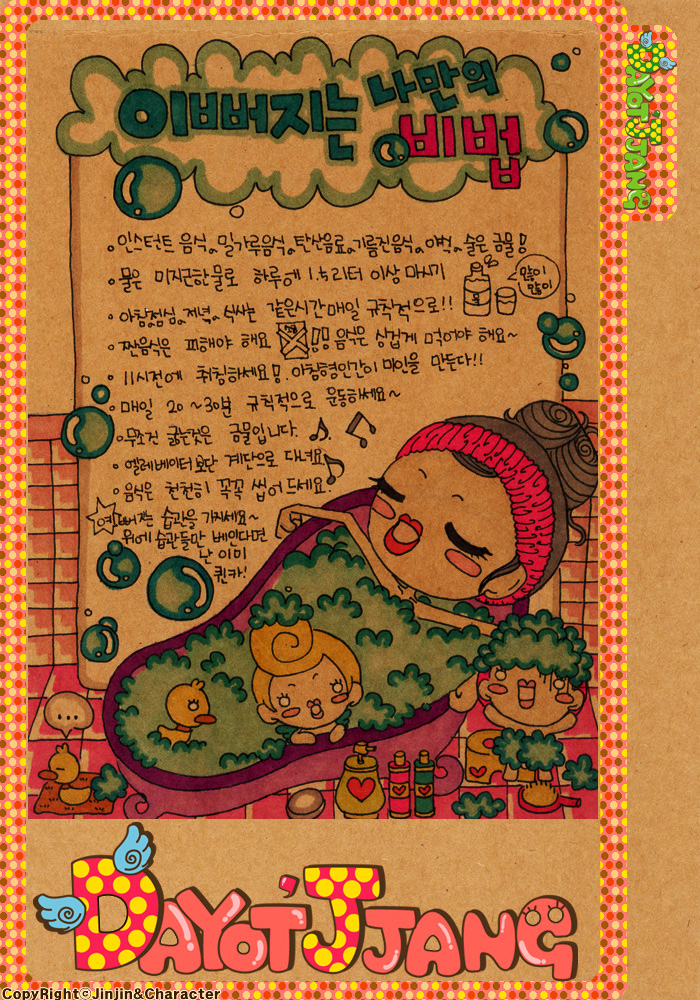 이뻐버지는 나만의
비법
인스턴트 음식, 밀가루음식, 탄산음료, 기름진음식, 야식, 술은 금물!
물은 미지근한물로 하루에 1.5리터 이상 마시기
많이
많이
아침, 점심, 저녁, 식사는 같은시간 매일 규칙적으로!!
짠음식은 피해야 해요 !! 음식은 싱겁게 먹어야 해요~
11시전에 취침하세요!. 아침형인간이 미인을 만든다!!
매일 20~30분 규칙적으로 운동하세요~
무조건 굶는것은 금물입니다.
엘레베이터 보단 계단으로 다녀요
음식은 천천히 꼭꼭 씹어 드세요.
습관을 가지세요~
위에 습관들만 베인다면
난 이미
퀸카!
...
DAYOT'JJANG
DAYOT'JJANG
CopyRight©Jinjin&Character